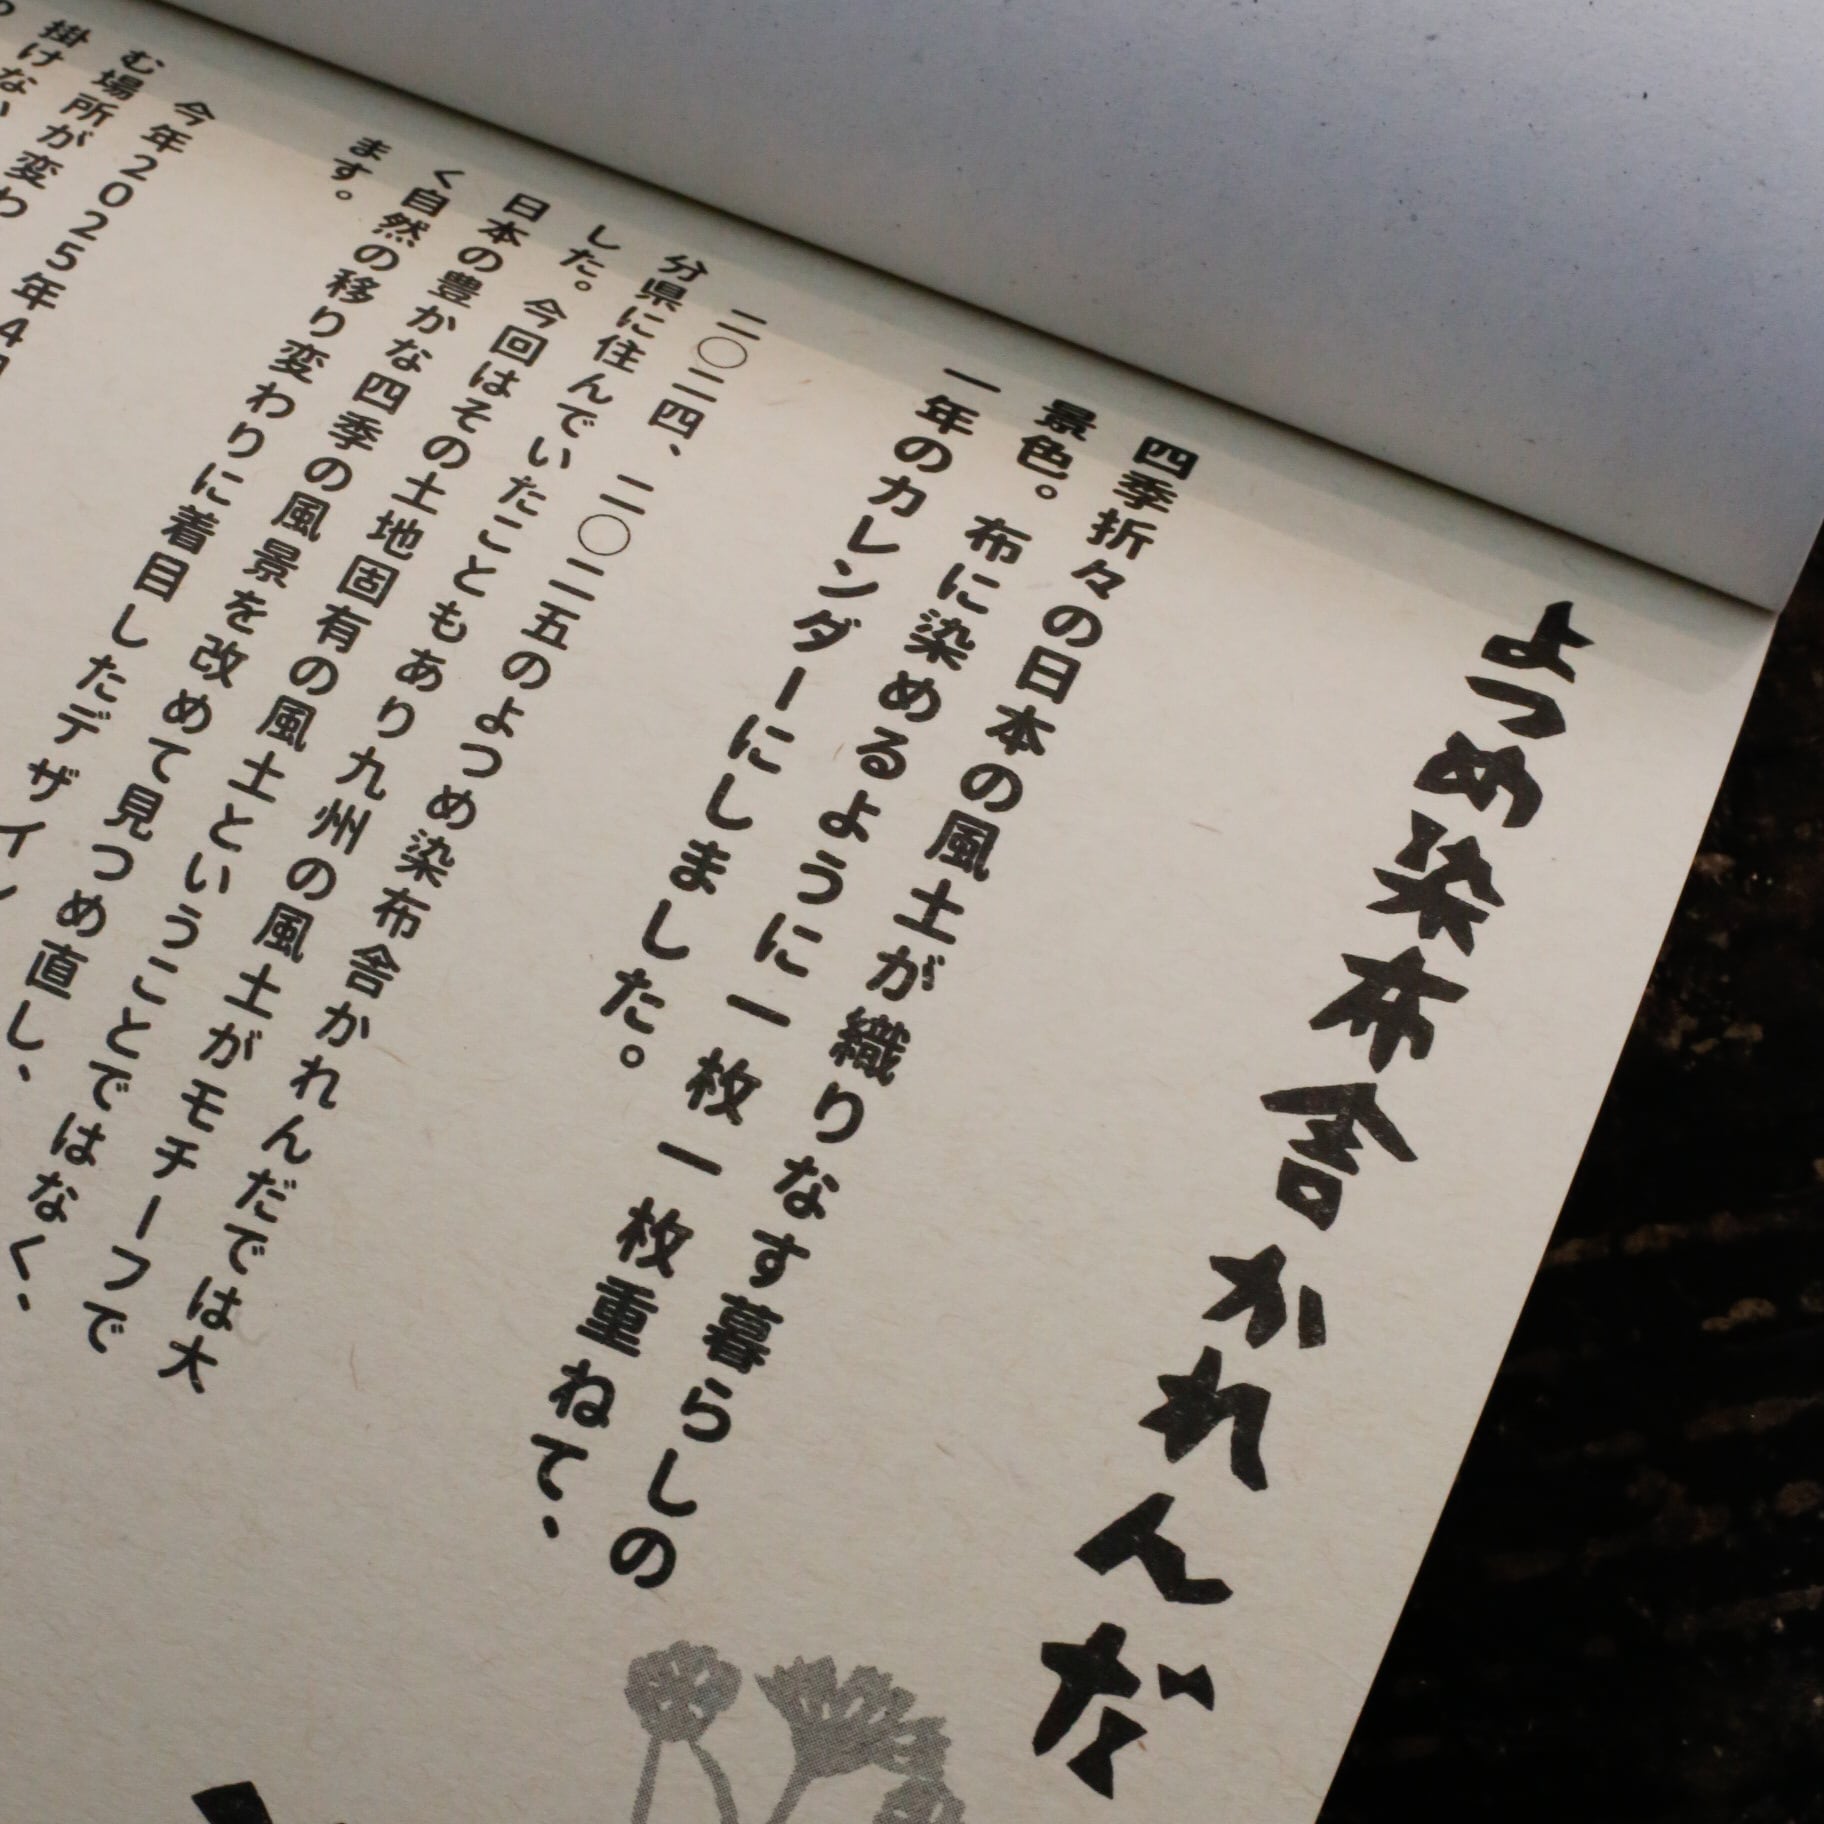 よつめ染布舎かれんだ
四季折々の日本の風土が織りなす暮らしの
景色。布に染めるように一枚一枚重ねて、
一年のカレンダーにしました。
二〇二四、二〇二五のよつめ染布舎かれんだでは大
分県に住んでいたこともあり九州の風土がモチーフで
した。今回はその土地固有の風土ということではなく、
日本の豊かな四季の風景を改めて見つめ直し、
く自然の移り変わりに着目したデザイ
ます。
今年2025年4
む場所が変わ
掛けない